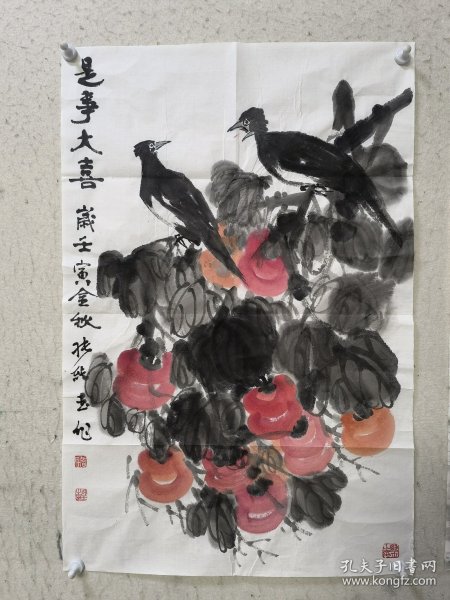 是事大喜
歲壬寅金秋張
孔夫子旧书网
www.kongfz.com